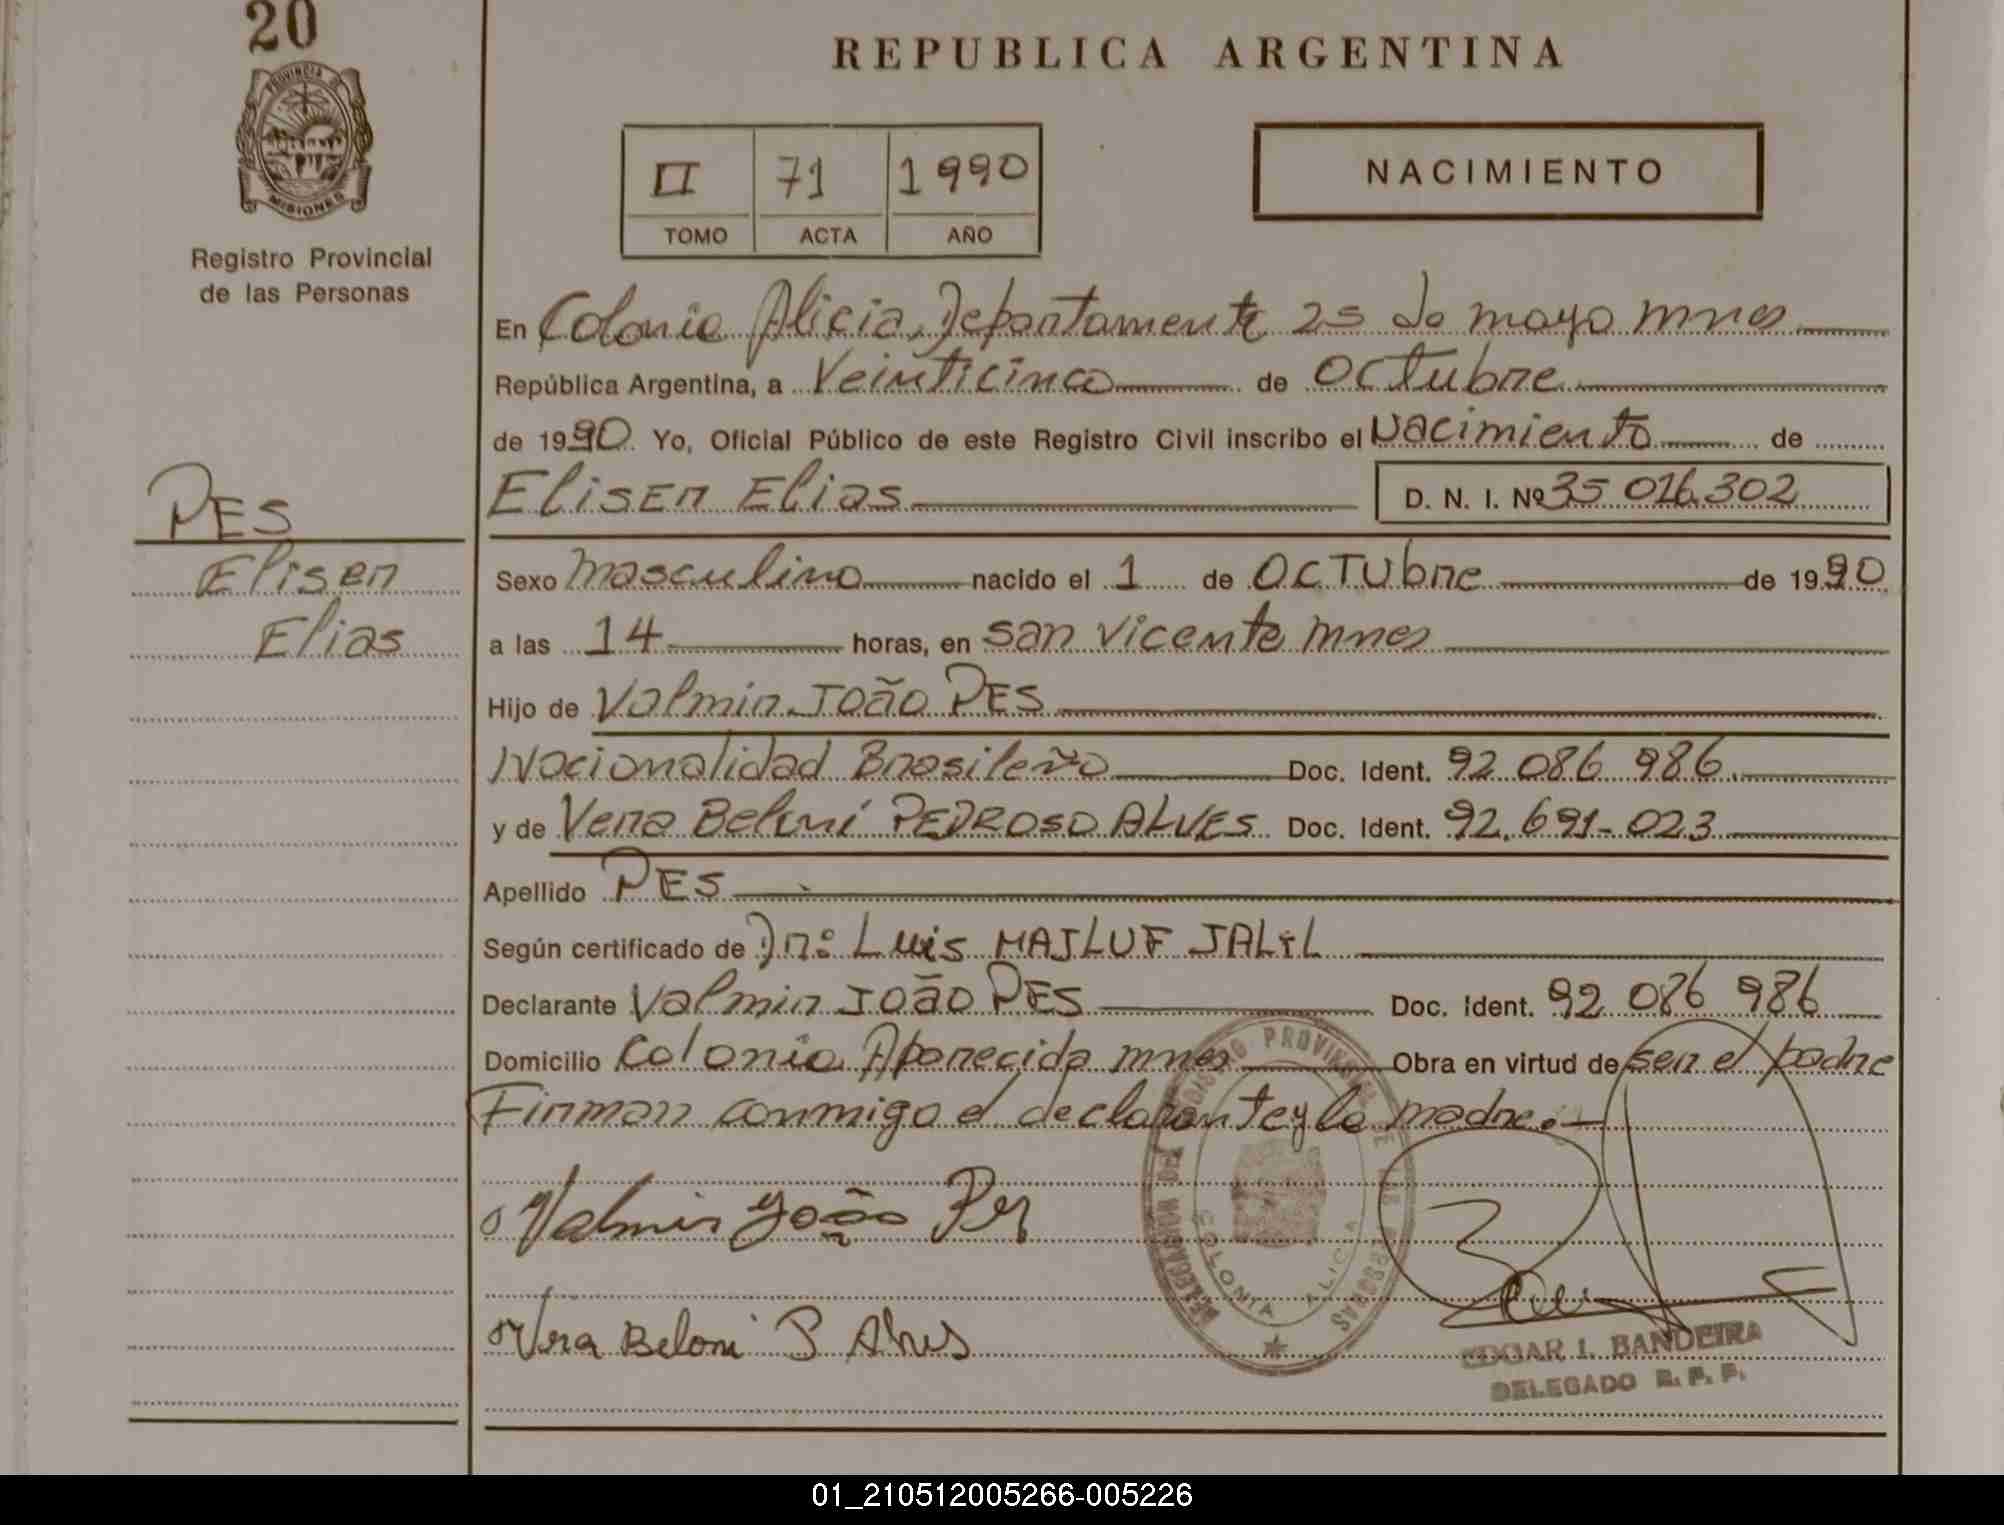 20
PROVINCIA DE
MISIONES
Registro Provincial
de las Personas
PES
Eliser
Elias
REPUBLICA ARGENTINA
II 71 1990
TOMO ACTA AÑO
NACIMIENTO
En Colonia Alicia, Departamento 25 de mayo mnes
República Argentina, a Veinticinco de Octubre
de 1990. Yo, Oficial Público de este Registro Civil inscribo el Nacimiento de
Eliser Elias D. N. I. Nº 35 016.302
Sexo masculino nacido el 1 de Octubre de 1990
a las 14 horas, en San Vicente mnes
Hijo de Valmir João PES
Nacionalidad Brasileño Doc. Ident. 92 086 986.
y de Vera Beloni PEDROSO ALVES Doc. Ident. 92.691-023
Apellido PES
Según certificado de Dr: Luis MAJLUF JALIL
Declarante Valmir João PES Doc. Ident. 92 086 986
Domicilio Colonia Aparecida mnes Obra en virtud de ser el padre
Firman conmigo el declarante y la madre.-
Valmir João Pes
Vera Beloni P Alves
REGISTRO PROVINCIAL DE LAS PERSONAS
COLONIA ALICIA
EDGAR I. BANDEIRA
DELEGADO R. P. P.
01_210512005266-005226